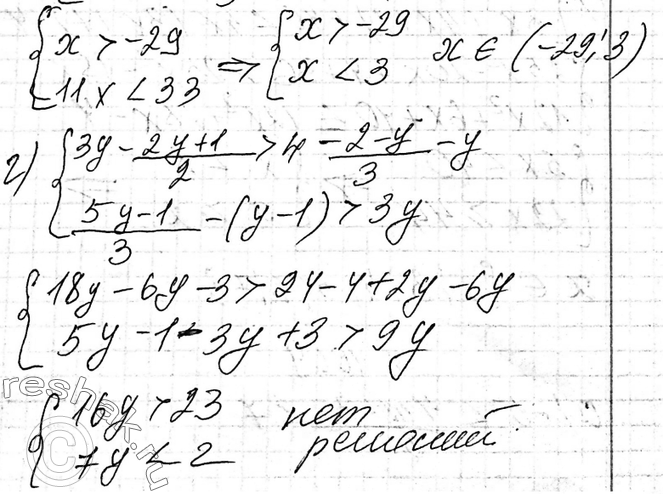 { x > -29 ⇒ { x > -29 x ∈ (-29; 3)
{ 11x < 33 { x < 3
2) { 3y - (2y+1)/2 > 4 - (2-y)/3 - y
{ (5y-1)/3 - (y-1) > 3y
{ 18y - 6y - 3 > 24 - 4 + 2y - 6y
{ 5y - 1 - 3y + 3 > 9y
{ 16y > 23 нет
{ 7y < 2 решений
reshak.ru